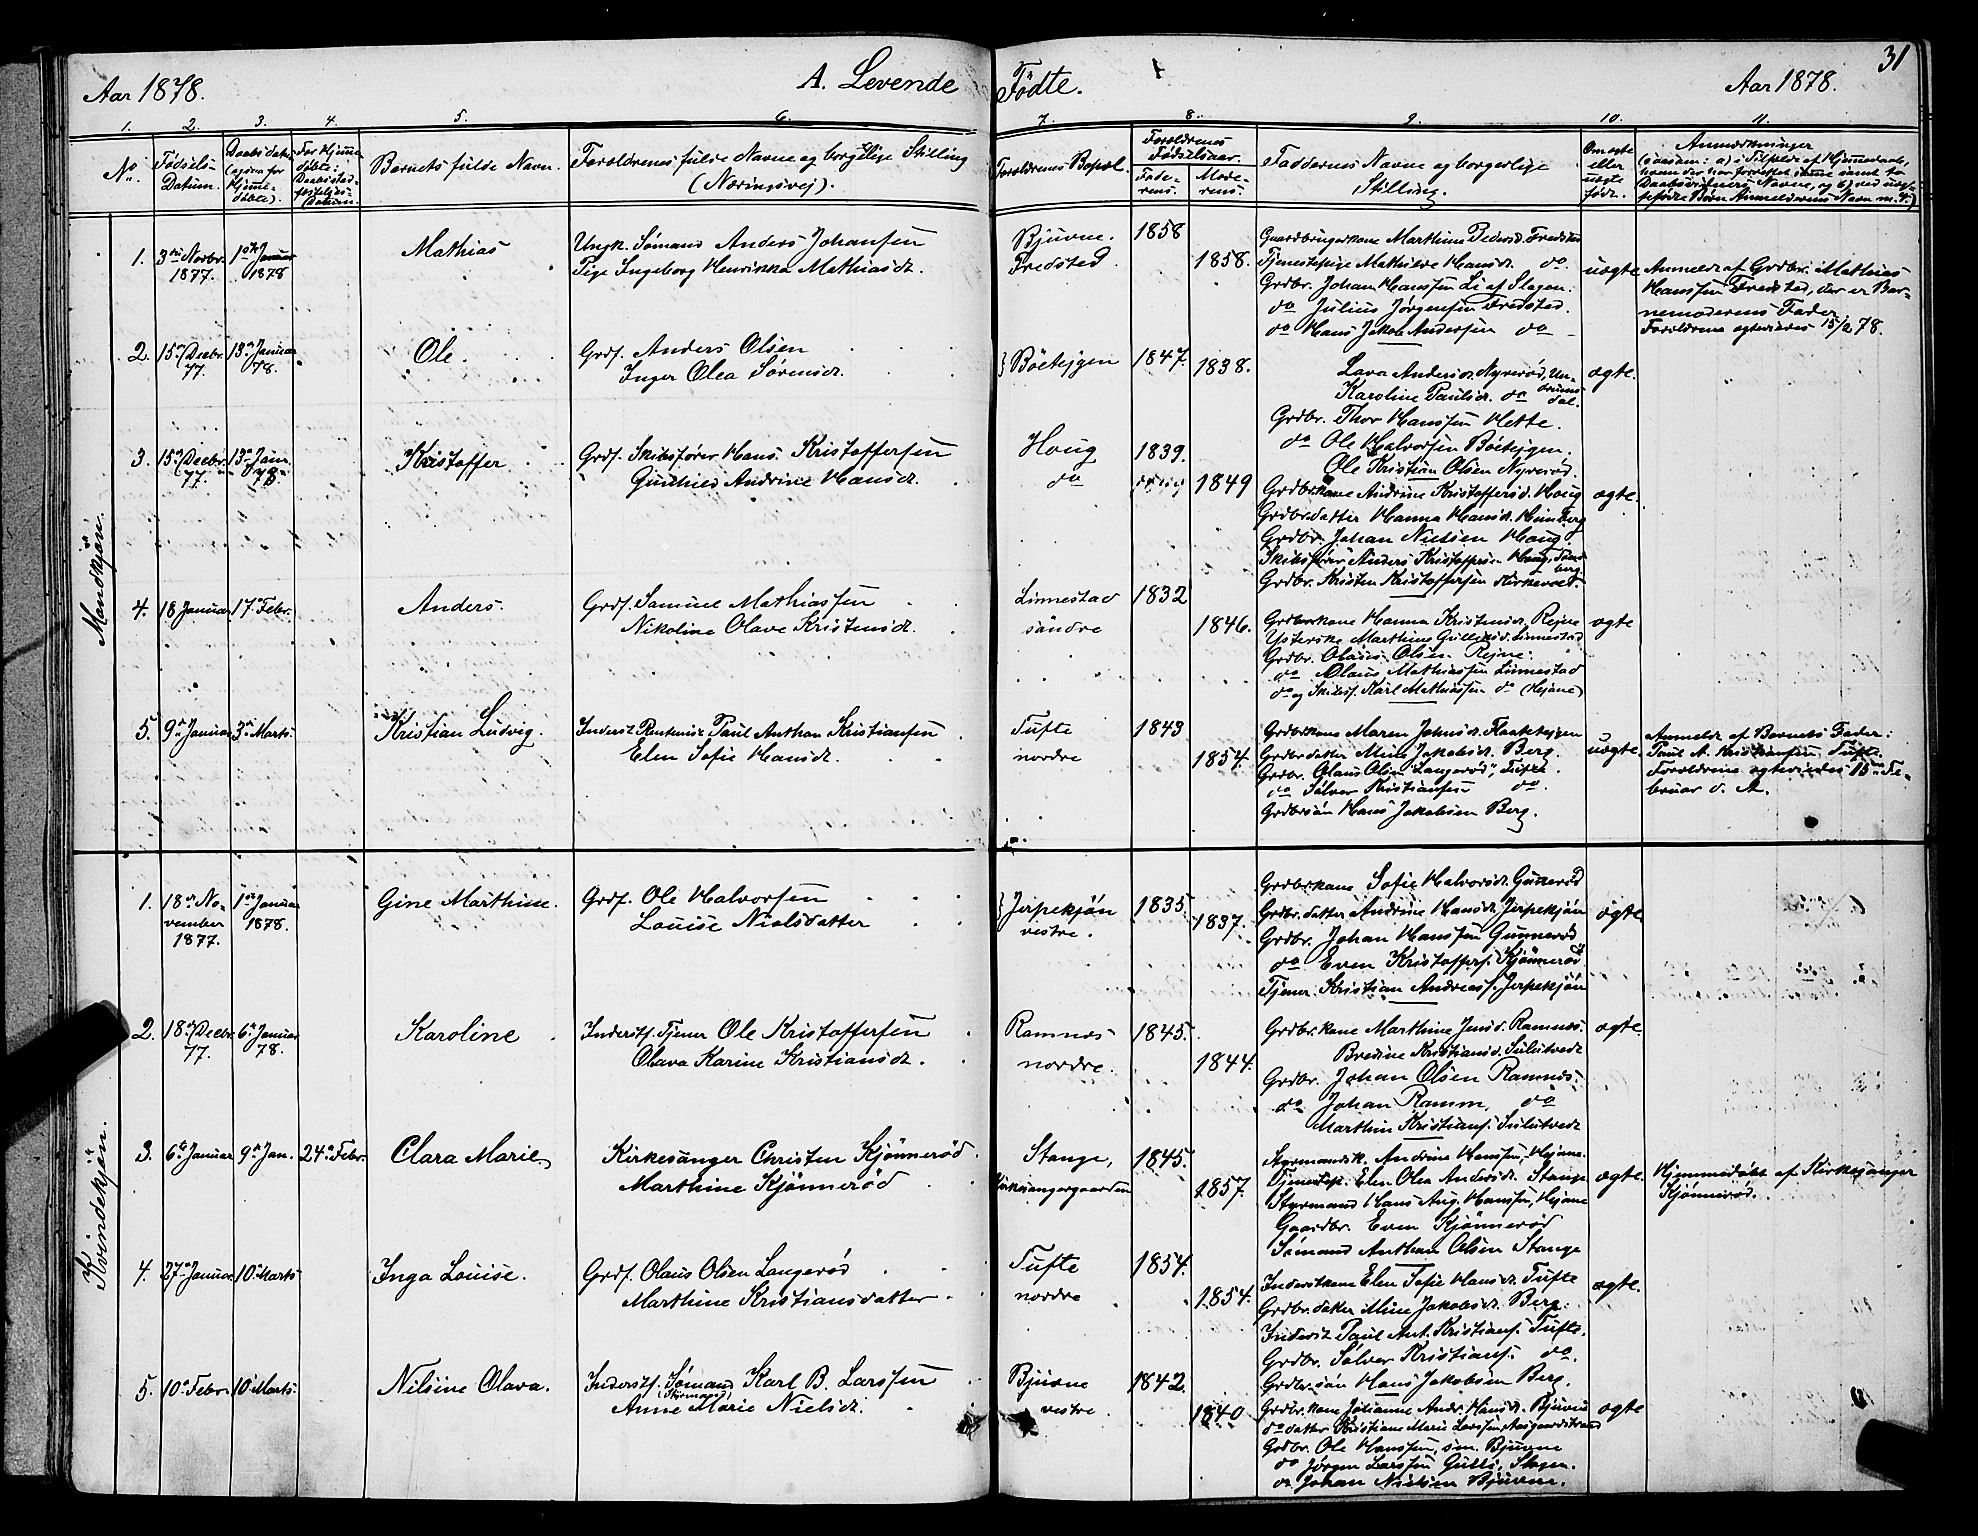 31
Aar 1878. A. Levende Fødte. Aar 1878.
1. 2. 3. 4. 5. 6. 7. 8. 9. 10. 11.
No. Fødsels Datum. Daabsdatum (ogsaa for Hjemmedøbte). For Hjemmedøbte: Barnets fulde Navn. Forældrenes fulde Navne og borgerlige Stilling (Næringsvej). Forældrenes Bopæl. Forældrenes Fødselsaar. Faderens. Moderens. Faddernes Navne og borgerlige Stilling. Om ægte eller uægte født. Anmærkninger
Mandkjøn.
1. 3die Novbr. 1877. 1ste Januar 1878 Mathias
Ungk. Sømand Anders Johansen
Pige Ingeborg Henrikka Mathiasdt.
Bjuvne. Fredsted 1858 1858.
Gaardbrugerkone Marthine Pedersd. Fredsted
Tjenestepige Mathilde Hansdt. do
Grdbr. Johan Hanssen Li af Slagen.
do Julius Jørgensen Fredsted.
do Hans Jakob Andersen do
uægte
Anmeldt af Grdbr. Mathias
Hanssen Fredsted, der er Bar-
nemoderens Fader.
Forældrene ægteviedes 15/2 78.
2. 15de Decbr. 77. 13de Januar 78. Ole.
Grdf. Anders Olsen
Inger Olea Sørensdt.
Böetejgen 1847. 1838.
Lava Andersdt. Nyrerød, Un-
Karoline Paulsdt. do drumsdal.
Grdbr. Thor Hanssen Hette.
do Ole Halvorsen Böetejgen.
Ole Kristian Olsen Nyrerød.
ægte.
3. 15de Decbr. 77. 13de Jan. 78. Kristoffer
Grdf. Skibsfører Hans Kristoffersen
Gunhild Andrine Hansdt.
Houg do 1839. 1849
Grdbr.kone Andrine Kristoffersd. Houg
Grdbr.datter Hanna Hansdt. Heimberg
Grdbr. Johan Nielsen Haug.
Skibsfører Anders Kristoffersen Haug,
Grdbr. Kristen Kristoffersen
ægte.
4. 18 Januar 17de Febr. Anders.
Grdf. Samuel Mathiassen
Nikoline Olave Kristensdt.
Linnestad söndre 1832 1846.
Grdbr.kone Hanna Kristensdt. Rejne
Marthine Linnestad
Grdbr. Olaus Olsen Rejne.
do Olaus Mathiassen Linnestad
do og Skibsf. Karl Mathiassen do (Hejane)
ægte
5. 9de Januar 3de Marts. Kristian Ludvig.
Inderst Paul Anthon Kristiansen
Elen Sofie Hansdt.
Tufte nordre 1843 1854.
Grdbr.kone Maren Johnsdt.
Grdbr.datter Mine Jakobsdt. Berg.
Grdbr. Olaus Olsen "Langerød", Tufte.
do Sölver Kristiansen do.
Grdbrsön Hans Jakobsen Berg.
uægte.
Anmeldt af Barnets Fader:
Paul A. Kristiansen Tufte.
Forældrene ægteviedes 15de Fe-
bruar d. A.
Kvindekjøn.
1. 18de November 1877. 1ste Januar 1878. Gine Marthine.
Grdf. Ole Halvorsen
Louise Nielsdatter
Jerpekjön vestre. 1835. 1837.
Grdbr.kone Sofie Halvorsdt. Gunnerød
Grdbr.datter Andrine Hansdt. Jerpekjön
Grdbr. Johan Hanssen Gunnerød
do Even Kristoffers. Kjønnerød
Tjener Kristian Andreass. Jerpekjön
ægte
2. 18de Decbr. 77. 6te Januar 78. Karoline
Inderstf. Tjener Ole Kristoffersen
Olava Karine Kristiansdt.
Ramnes nordre. 1845. 1844.
Grdbr.kone Marthine Jensd. Ramnes.
Bredine Kristiansd. Sulutvedt
Grdbr. Johan Olsen Ramnes.
do Johan Ramm, do
Marthin Kristians. Sulutvedt
ægte.
3. 6te Januar 9de Jan. 24de Febr. Clara Marie.
Kirkesanger Christen Kjønnerød.
Marthine Kjønnerød
Stange, Kirkesangergaarden 1845. 1857.
Styrmandsk. Andrine Hanssen, Hejane
Tjenestep. Elen Olea Andersdt. Stange
Styrmand Hans Aug. Hanssen, Hejane
Gaardbr. Even Kjønnerød
Sømand Anthon Olsen Stange
ægte.
Hjemmedöbt af Kirkesanger
Kjønnerød.
4. 27de Januar 10de Marts Inga Louise.
Grdf. Olaus Olsen Langerød
Marthine Kristiansdatter
Tufte nordre 1854. 1854.
Inderstkone Elen Sofie Hansdt. Tufte
Grdbr.datter Mine Jakobsdt. Berg.
Inderst Paul Ant. Kristians. Tufte.
Grdbr. Sölver Kristians. do.
Grdbr.sön Hans Jakobsen Berg.
ægte.
5. 10de Febr. 10de Marts. Nilsine Olava.
Inderstf. Sømand Karl B. Larssen
(Styrmand)
Anne Marie Nielsdt.
Bjuvne vestre. 1842. 1840
Grdbr.kone Johanne Andr. Hansdt. Bjuvne
do datter Kristiane Marie Larssen, Aasgaardstrand
Grdbr. Ole Hanssen, sön. Bjuvne
do Jørgen Larssen Gulli, Slagen.
do Johan Nielsen Bjuvne.
ægte